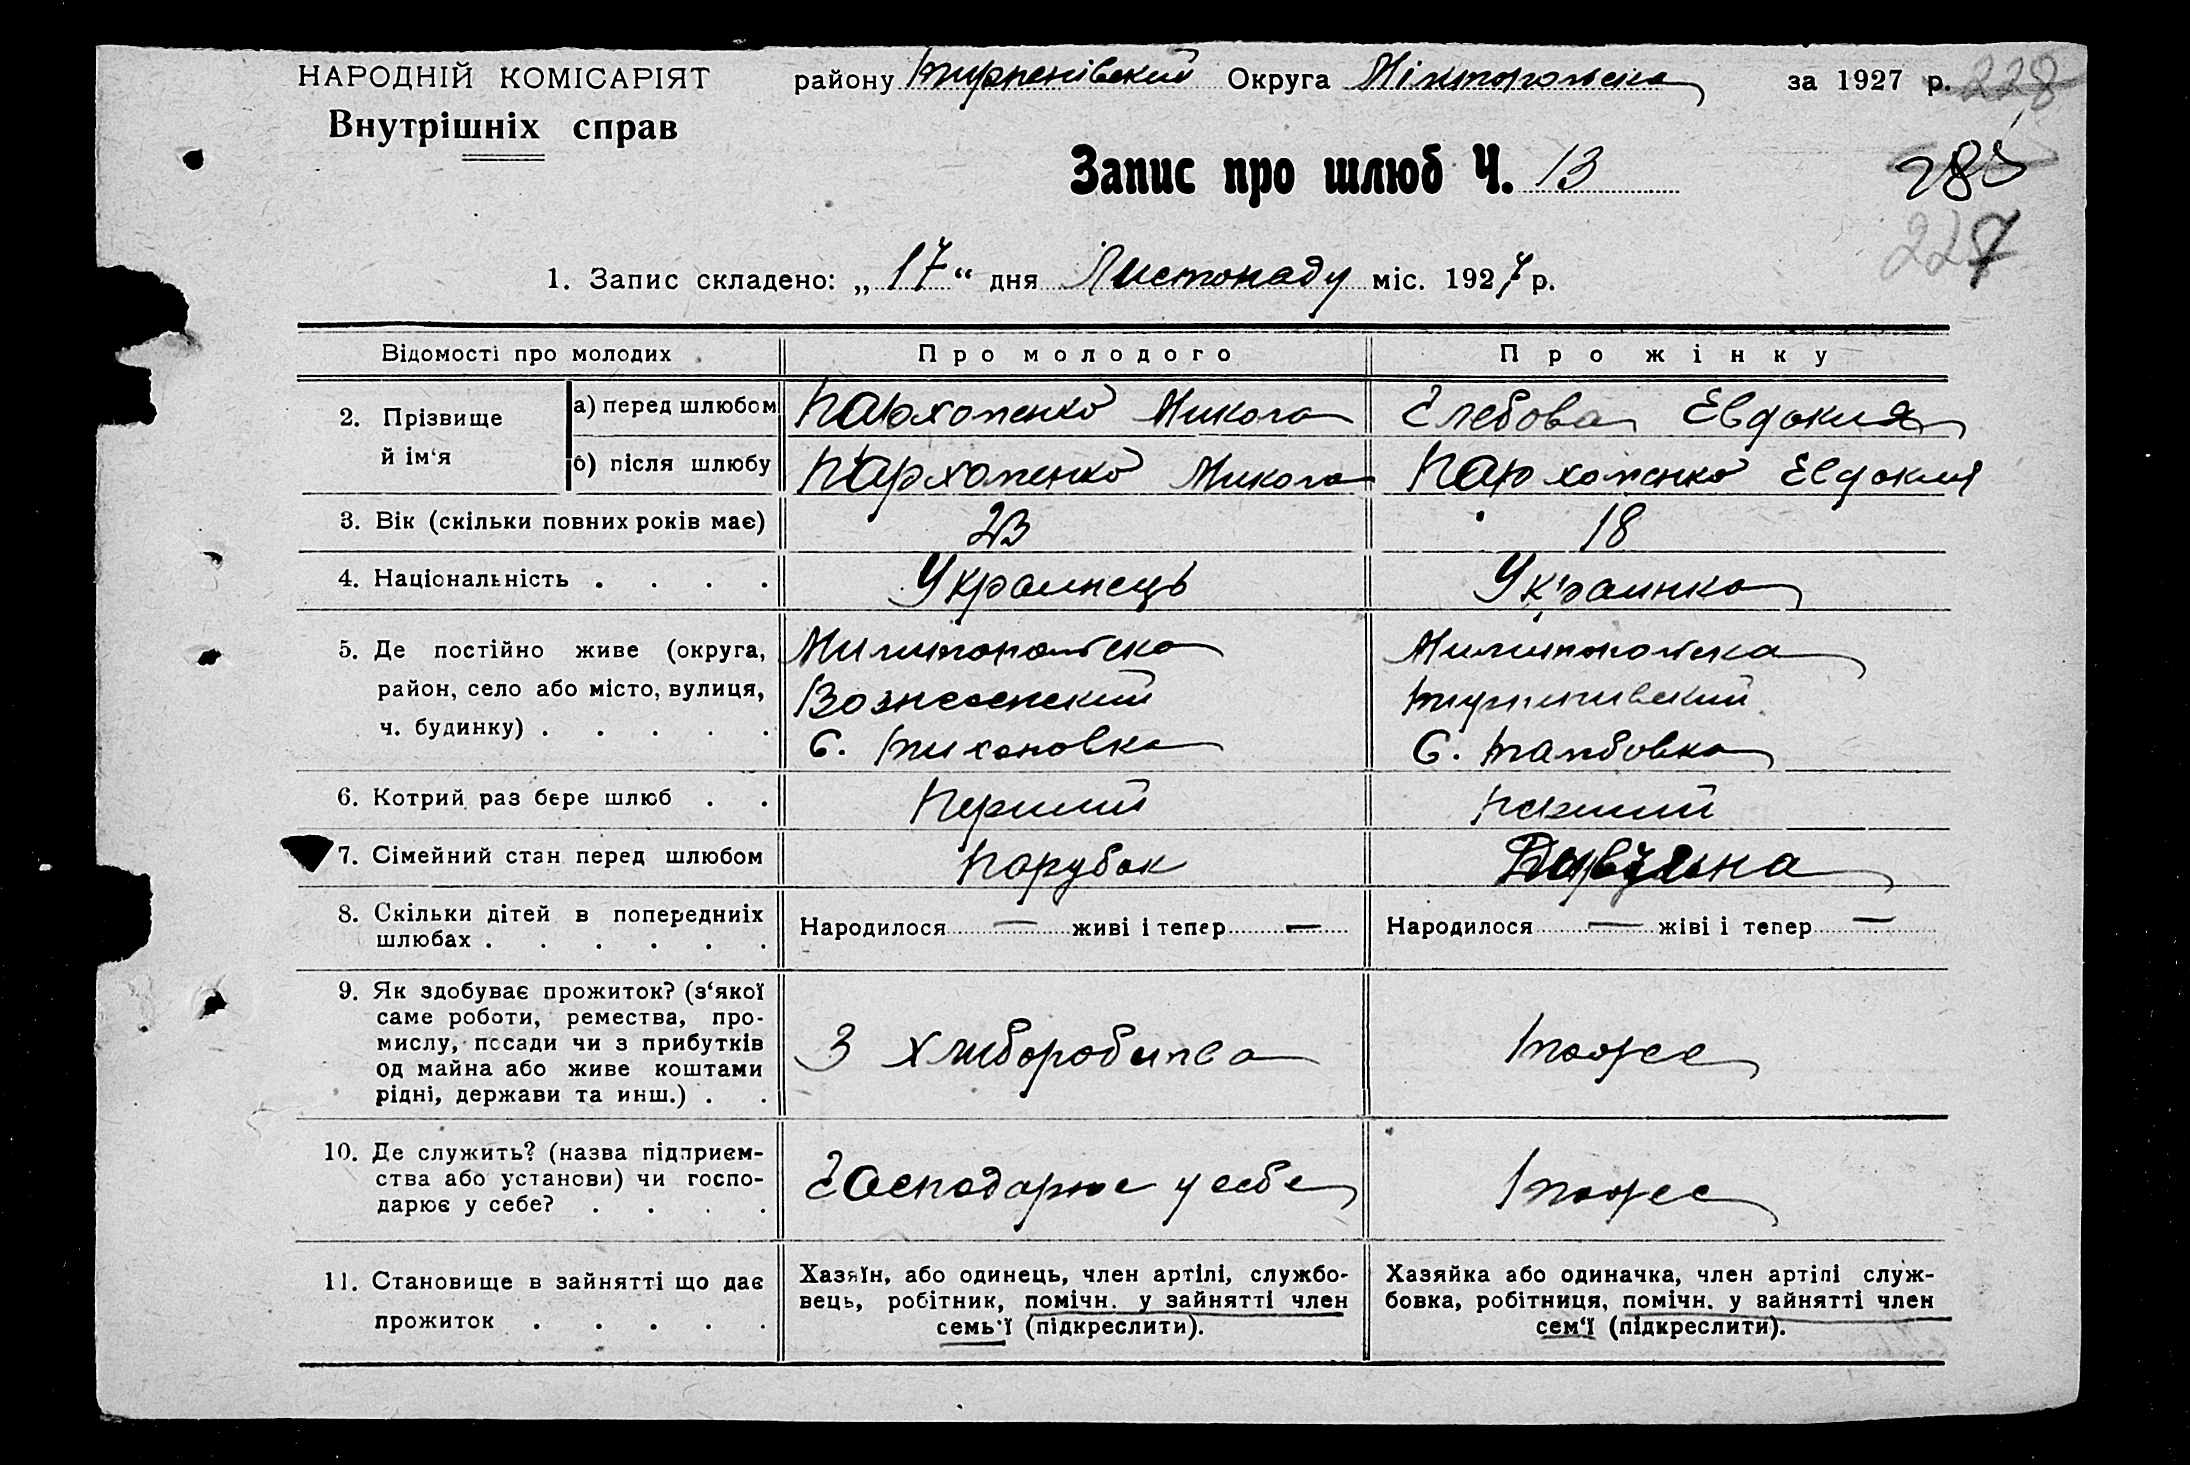 НАРОДНІЙ КОМІСАРІЯТ
Внутрішніх справ
району Округа за 1927 р. 228
Запис про шлюб Ч. 13
283
227
1. Запис складено: „17“ дня Листопаду міс. 1927 р.
Відомості про молодих Про молодого Про жінку
2. Прізвище й ім‘я
а) перед шлюбом Пархоменко Микола Глебова Евдокия
б) після шлюбу Пархоменко Микола Пархоменко Евдокия
3. Вік (скільки повних років має) 23 18
4. Національність . . . . Украинець Украинка
5. Де постійно живе (округа, Милитопольска Милитопольска
район, село або місто, вулиця, Вознесенский
ч. будинку) . . . . . С. Тихоновка С. Тамбовка
6. Котрий раз бере шлюб . . Перший Перший
7. Сімейний стан перед шлюбом Парубок Дивчина
8. Скільки дітей в попередниіх
шлюбах . . . . . .
Народилося — живі і тепер — Народилося — жіві і тепер —
9. Як здобуває прожиток? (з‘якої
саме роботи, ремества, про-
мислу, посади чи з прибутків
од майна або живе коштами
рідні, держави та инш.) . .
З хлиборобства Тоже
10. Де служить? (назва підприєм-
ства або установи) чи госпо-
дарює у себе? . . . .
Господарює у себе Тоже
11. Становище в зайнятті що дає
прожиток . . . . .
Хазяїн, або одинець, член артілі, службо-
вець, робітник, помічн. у зайнятті член
семь‘ї (підкреслити).
Хазяйка або одиначка, член артілі служ-
бовка, робітниця, помічн. у зайнятті член
сем‘ї (підкреслити).